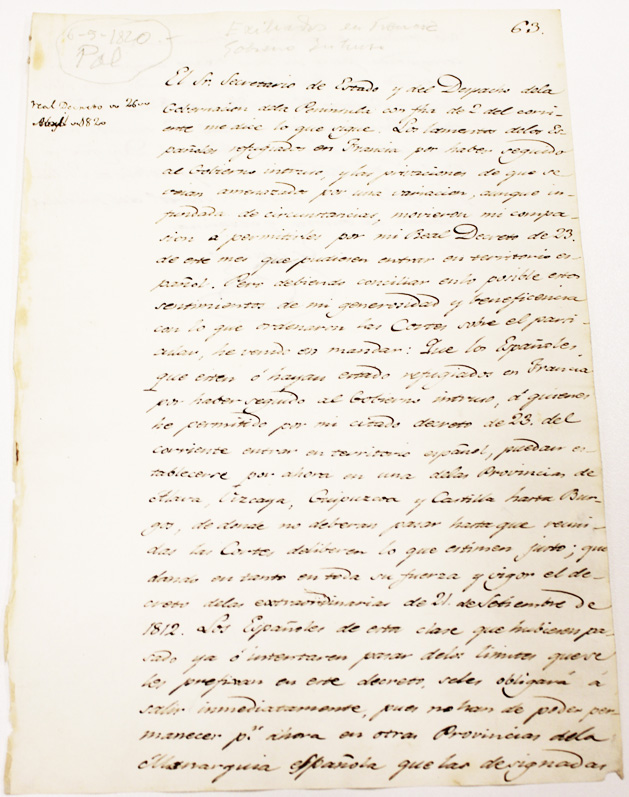 63.
6-9-1820
Pol
Exiliados en Francia
Gobierno intruso
Real Decreto de 26 de
Abril de 1820
El Sr. Secretario de Estado y del Despacho dela
Gobernacion dela Peninsula con fha de 2 del corri-
ente me dice lo que sigue. Los lamentos delos Es-
pañoles refugiados en Francia por haber seguido
al Gobierno intruso, y las privaciones de que se
veian amenazados por una variacion, aunque in-
fundada de circunstancias, movieron mi compa-
sion á permitirles por mi Real Decreto de 23.
de este mes que pudieren entrar en territorio es-
pañol. Pero debiendo conciliar enlo posible estos
sentimientos de mi generosidad y beneficencia
con lo que ordenaron las Cortes sobre el parti-
cular, he venido en mandar: Que los Españoles
que esten ó hayan estado refugiados en Francia
por haber seguido al Gobierno intruso, á quienes
he permitido por mi citado decreto de 23. del
corriente entrar en territorio español, puedan es-
tablecerse por ahora en una delas Provincias de
Alava, Vizcaya, Guipuzcoa y Castilla hasta Bur-
gos, de donde no deberan pasar hasta que reuni-
das las Cortes deliberen lo que estimen justo; que
dando en tanto en toda su fuerza y vigor el de-
creto delas extraordinarias de 21. de Setiembre de
1812. Los Españoles de esta clase que hubieren pa-
sado ya ó intentaren pasar delos limites que se
les prefixan en este decreto, seles obligará á
salir inmediatamente, pues no han de poder per-
manecer pr. ahora en otras Provincias dela
Monarquia española que las designadas